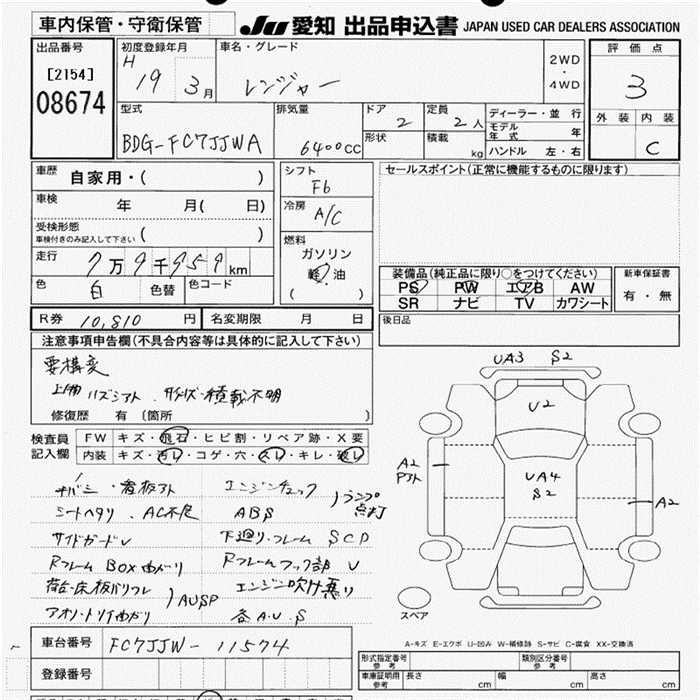 車内保管・守衛保管
JU 愛知 出品申込書 JAPAN USED CAR DEALERS ASSOCIATION
出品番号
[2154]
08674
初度登録年月
H 19 3月
車名・グレード
レンジャー
2WD
・
4WD
評価点
3
外装 内装
C
型式
BDG-FC7JJWA
排気量
6400cc
ドア
2
定員
2人
形状
積載
kg
ディーラー・並行
モデル年式 年
ハンドル 左・右
車歴
自家用・( )
車検
年 月( 日)
受検形態
車検付きのみ記入して下さい ( )
走行
7万9千959km
色
白
色替
色コード
シフト
F6
冷房
A/C
燃料
ガソリン
軽油
( )
セールスポイント(正常に機能するものに限ります)
装備品(純正品に限り○をつけてください)
PS PW エアB AW
SR ナビ TV カワシート
新車保証書
有・無
R券 10,810円
名変期限 月 日
後日品
注意事項申告欄(不具合内容等は具体的に記入して下さい)
要構変
積載不明
修復歴 有〔箇所 〕
検査員
記入欄
FW キズ・飛石・ヒビ割・リペア跡・X要
内装 キズ・汚レ・コゲ・穴・スレ・キレ・破レ
看板アト
エンジンチェック
ランプ点灯
シートヘタリ、AC不良
ABS
サイドガードU
下廻り・フレーム SCP
Rフレーム BOX曲がり
Rフレームフック部 U
荷台・床板
AUSP
エンジン吹け悪い
アオリ・トリイ曲がり
各A.U.S
UA3 S2
U2
A2
UA4
S2
A2
スペア
A-キズ E-エクボ U-凹み W-補修跡 S-サビ C-腐食 XX-交換済
車台番号 FC7JJW-11574
登録番号
形式指定番号
参考
類別区分番号
参考
車庫証明用
参考
長さ cm
幅 cm
高さ cm